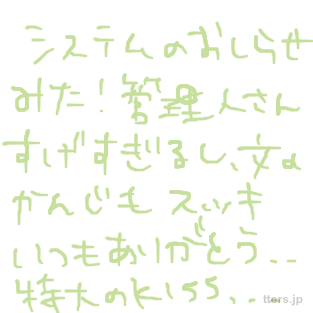 システムのおしらせ
みた!管理人さん
すげすぎるし、文の
かんじも スッキ
いつもありがとう..
特大のKISS...
tters.jp